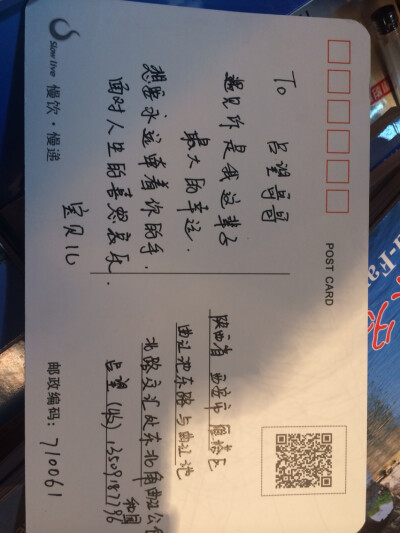 To 占望哥哥
遇见你是我这辈子
最大的幸运.
想要永远牵着你的手.
面对人生的喜怒哀乐.
宝贝儿
Slow live 慢饮·慢递
POST CARD
陕西省 西安市 雁塔区
曲江池东路与曲江池
北路交汇处东北角曲江公
占望(收) 13509187796
邮政编码: 710061